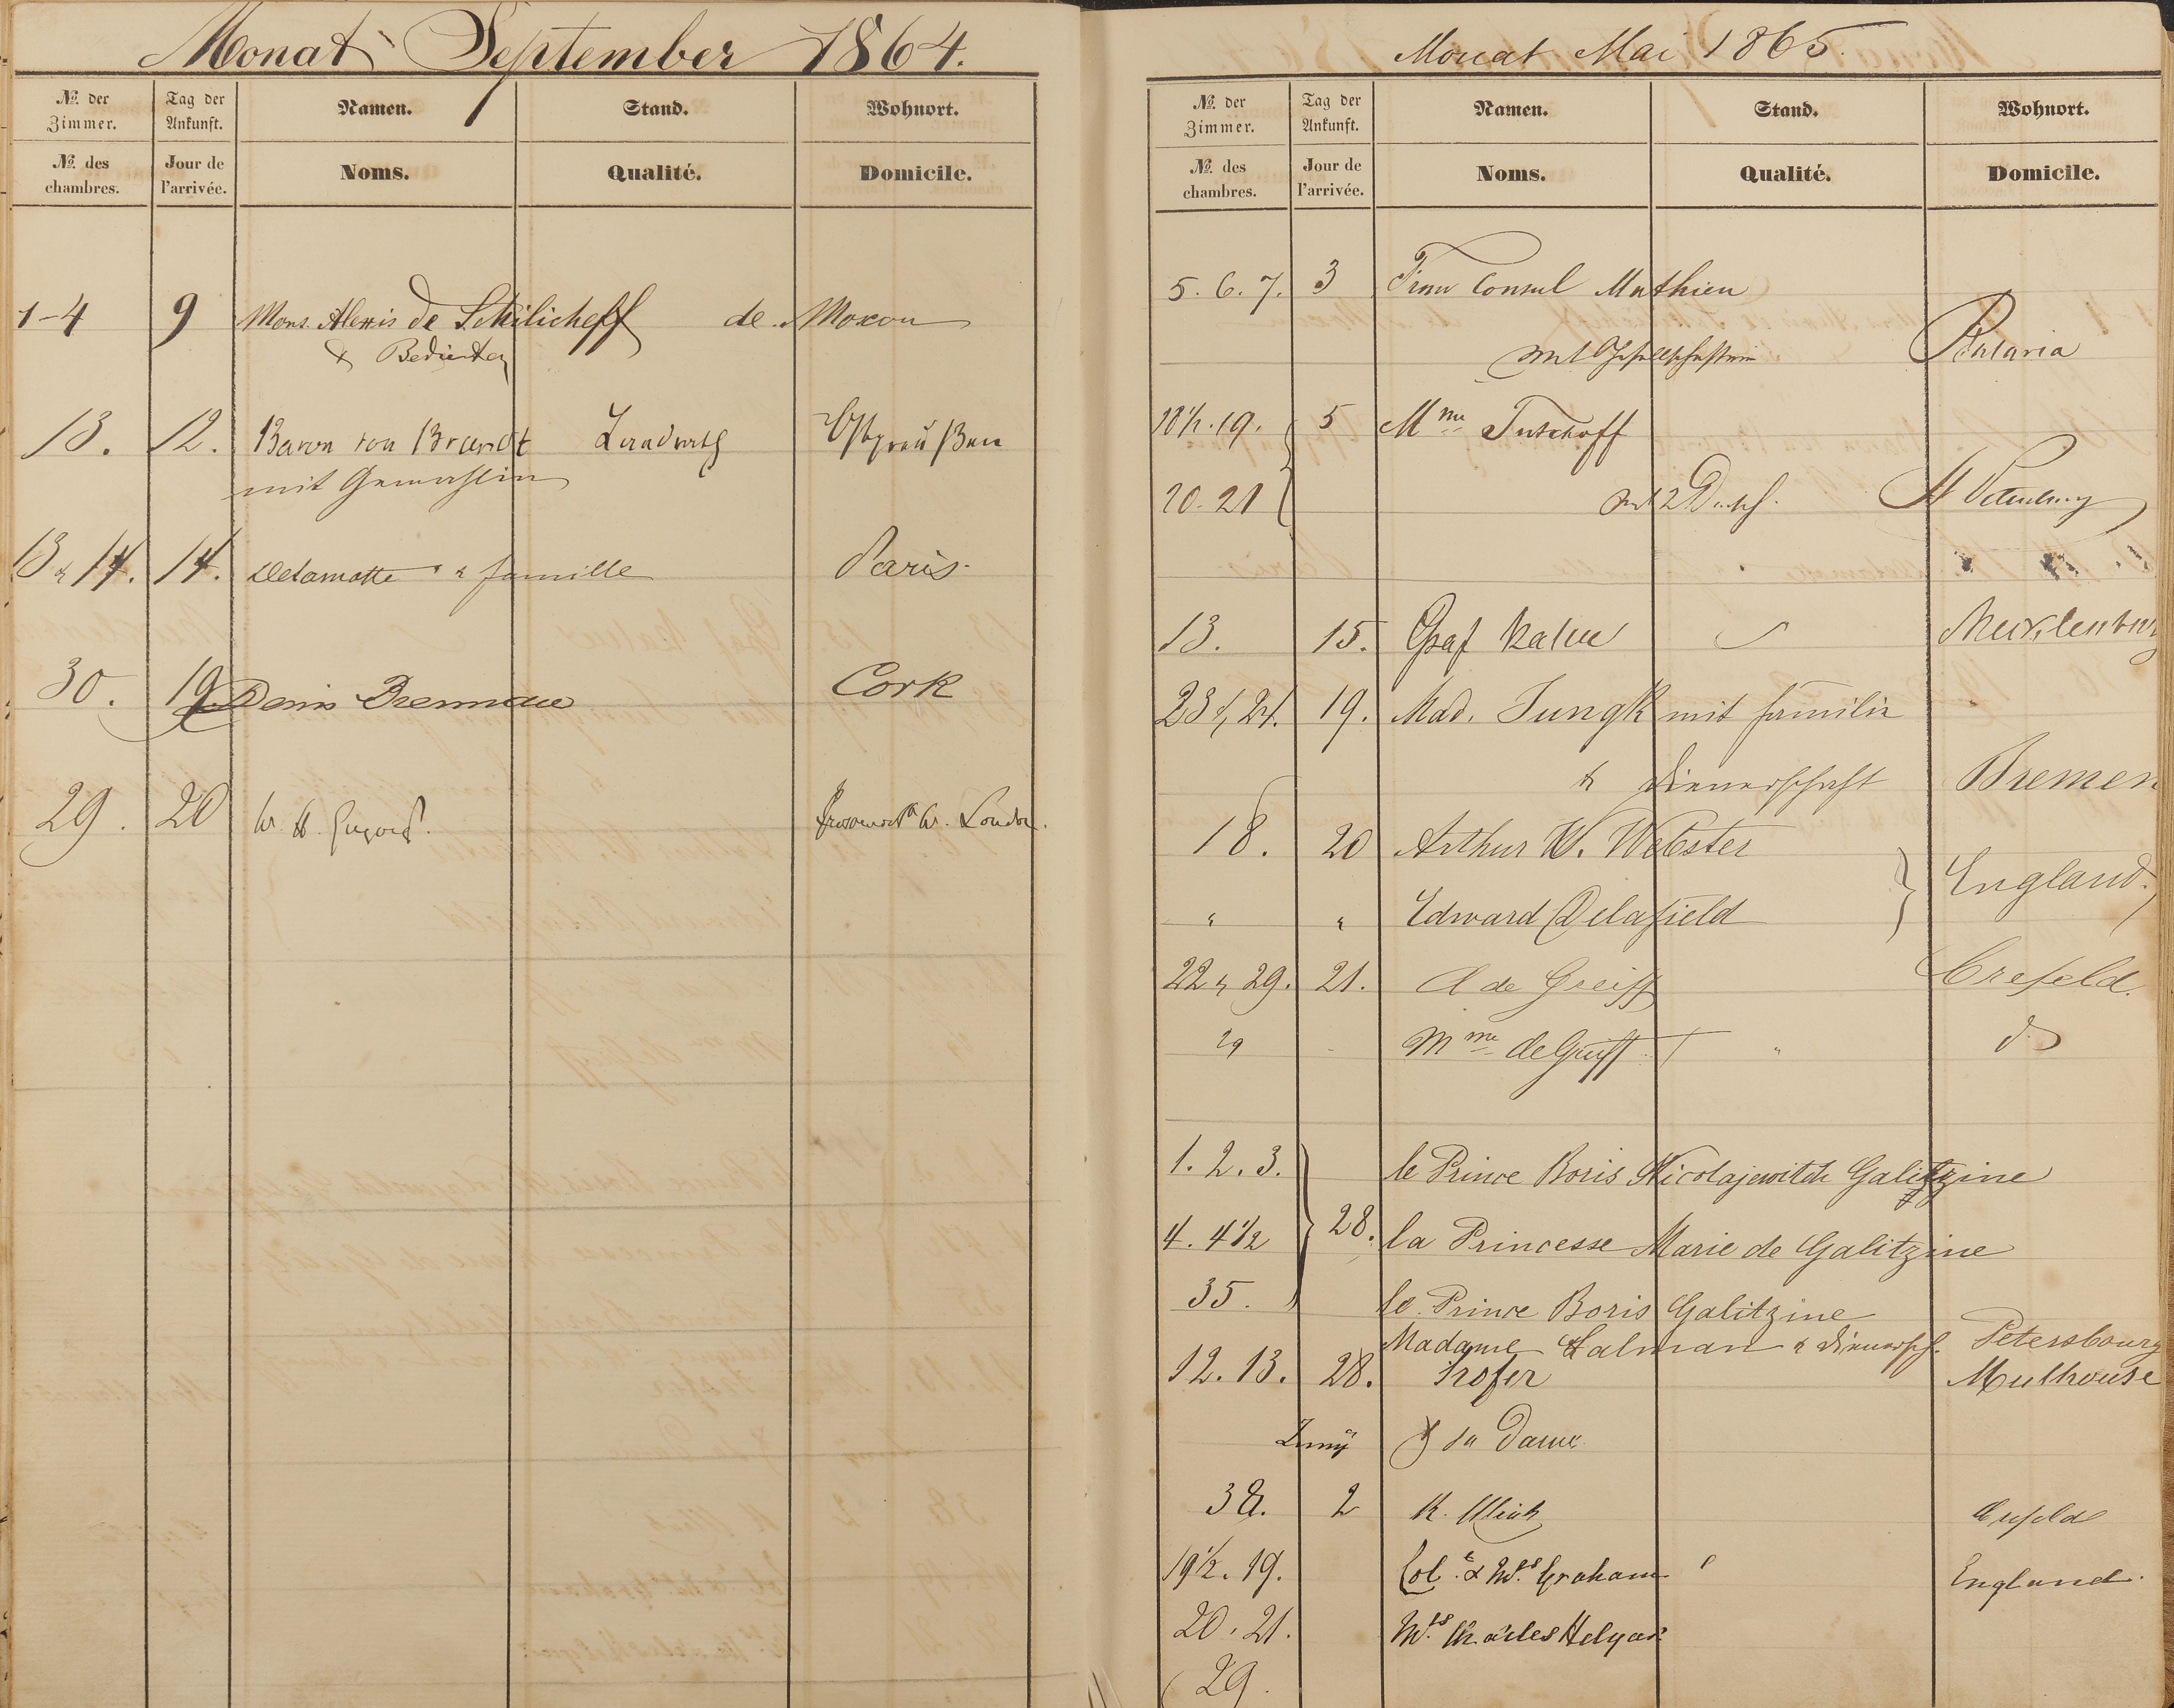 Monat September 1864.
№ der Zimmer. Tag der Ankunft. Namen. Stand. Wohnort.
№ des chambres. Jour de l'arrivée. Noms. Qualité. Domicile.
1-4 9 Mons. Alexis de de Moxou
& Bedienten
13. 12. Baron von Brandt Landwirth Ostpreußen
mit Gemahlin
13 & 14. 14. Delamotte & famille Paris
30. 19. Denis Brennan Cork
29. 20 W. H. W. London.
Monat Mai 1865.
№ der Zimmer. Tag der Ankunft. Namen. Stand. Wohnort.
№ des chambres. Jour de l'arrivée. Noms. Qualité. Domicile.
5. 6. 7. 3 Frau Consul Mathieu
mit Gesellschafterin Batavia
18½. 19. 5 Mme Tutchoff
20. 21 mit 2 St Petersburg
13. 15. Graf Mecklenburg
23 & 24. 19. Mad. Jungk mit Familie
& Dienerschaft Bremen
18. 20 Arthur W. Webster
England.
" " Edward Delafield
22 & 29. 21. A de Greiff Crefeld.
29 Mme de Greiff " do
1. 2. 3. le Prince Boris Nicolajewitch Galitzine
4. 4½ 28. la Princesse Marie de Galitzine
35. le Prince Boris Galitzine
Madame & Dienersch. Petersbourg
12. 13. 28. Mulhouse
Juny & sa Dame
38. 2 K. Crefeld
19½. 19. Col. & Mrs Graham England.
20. 21. Mrs Charles Helyar
29.